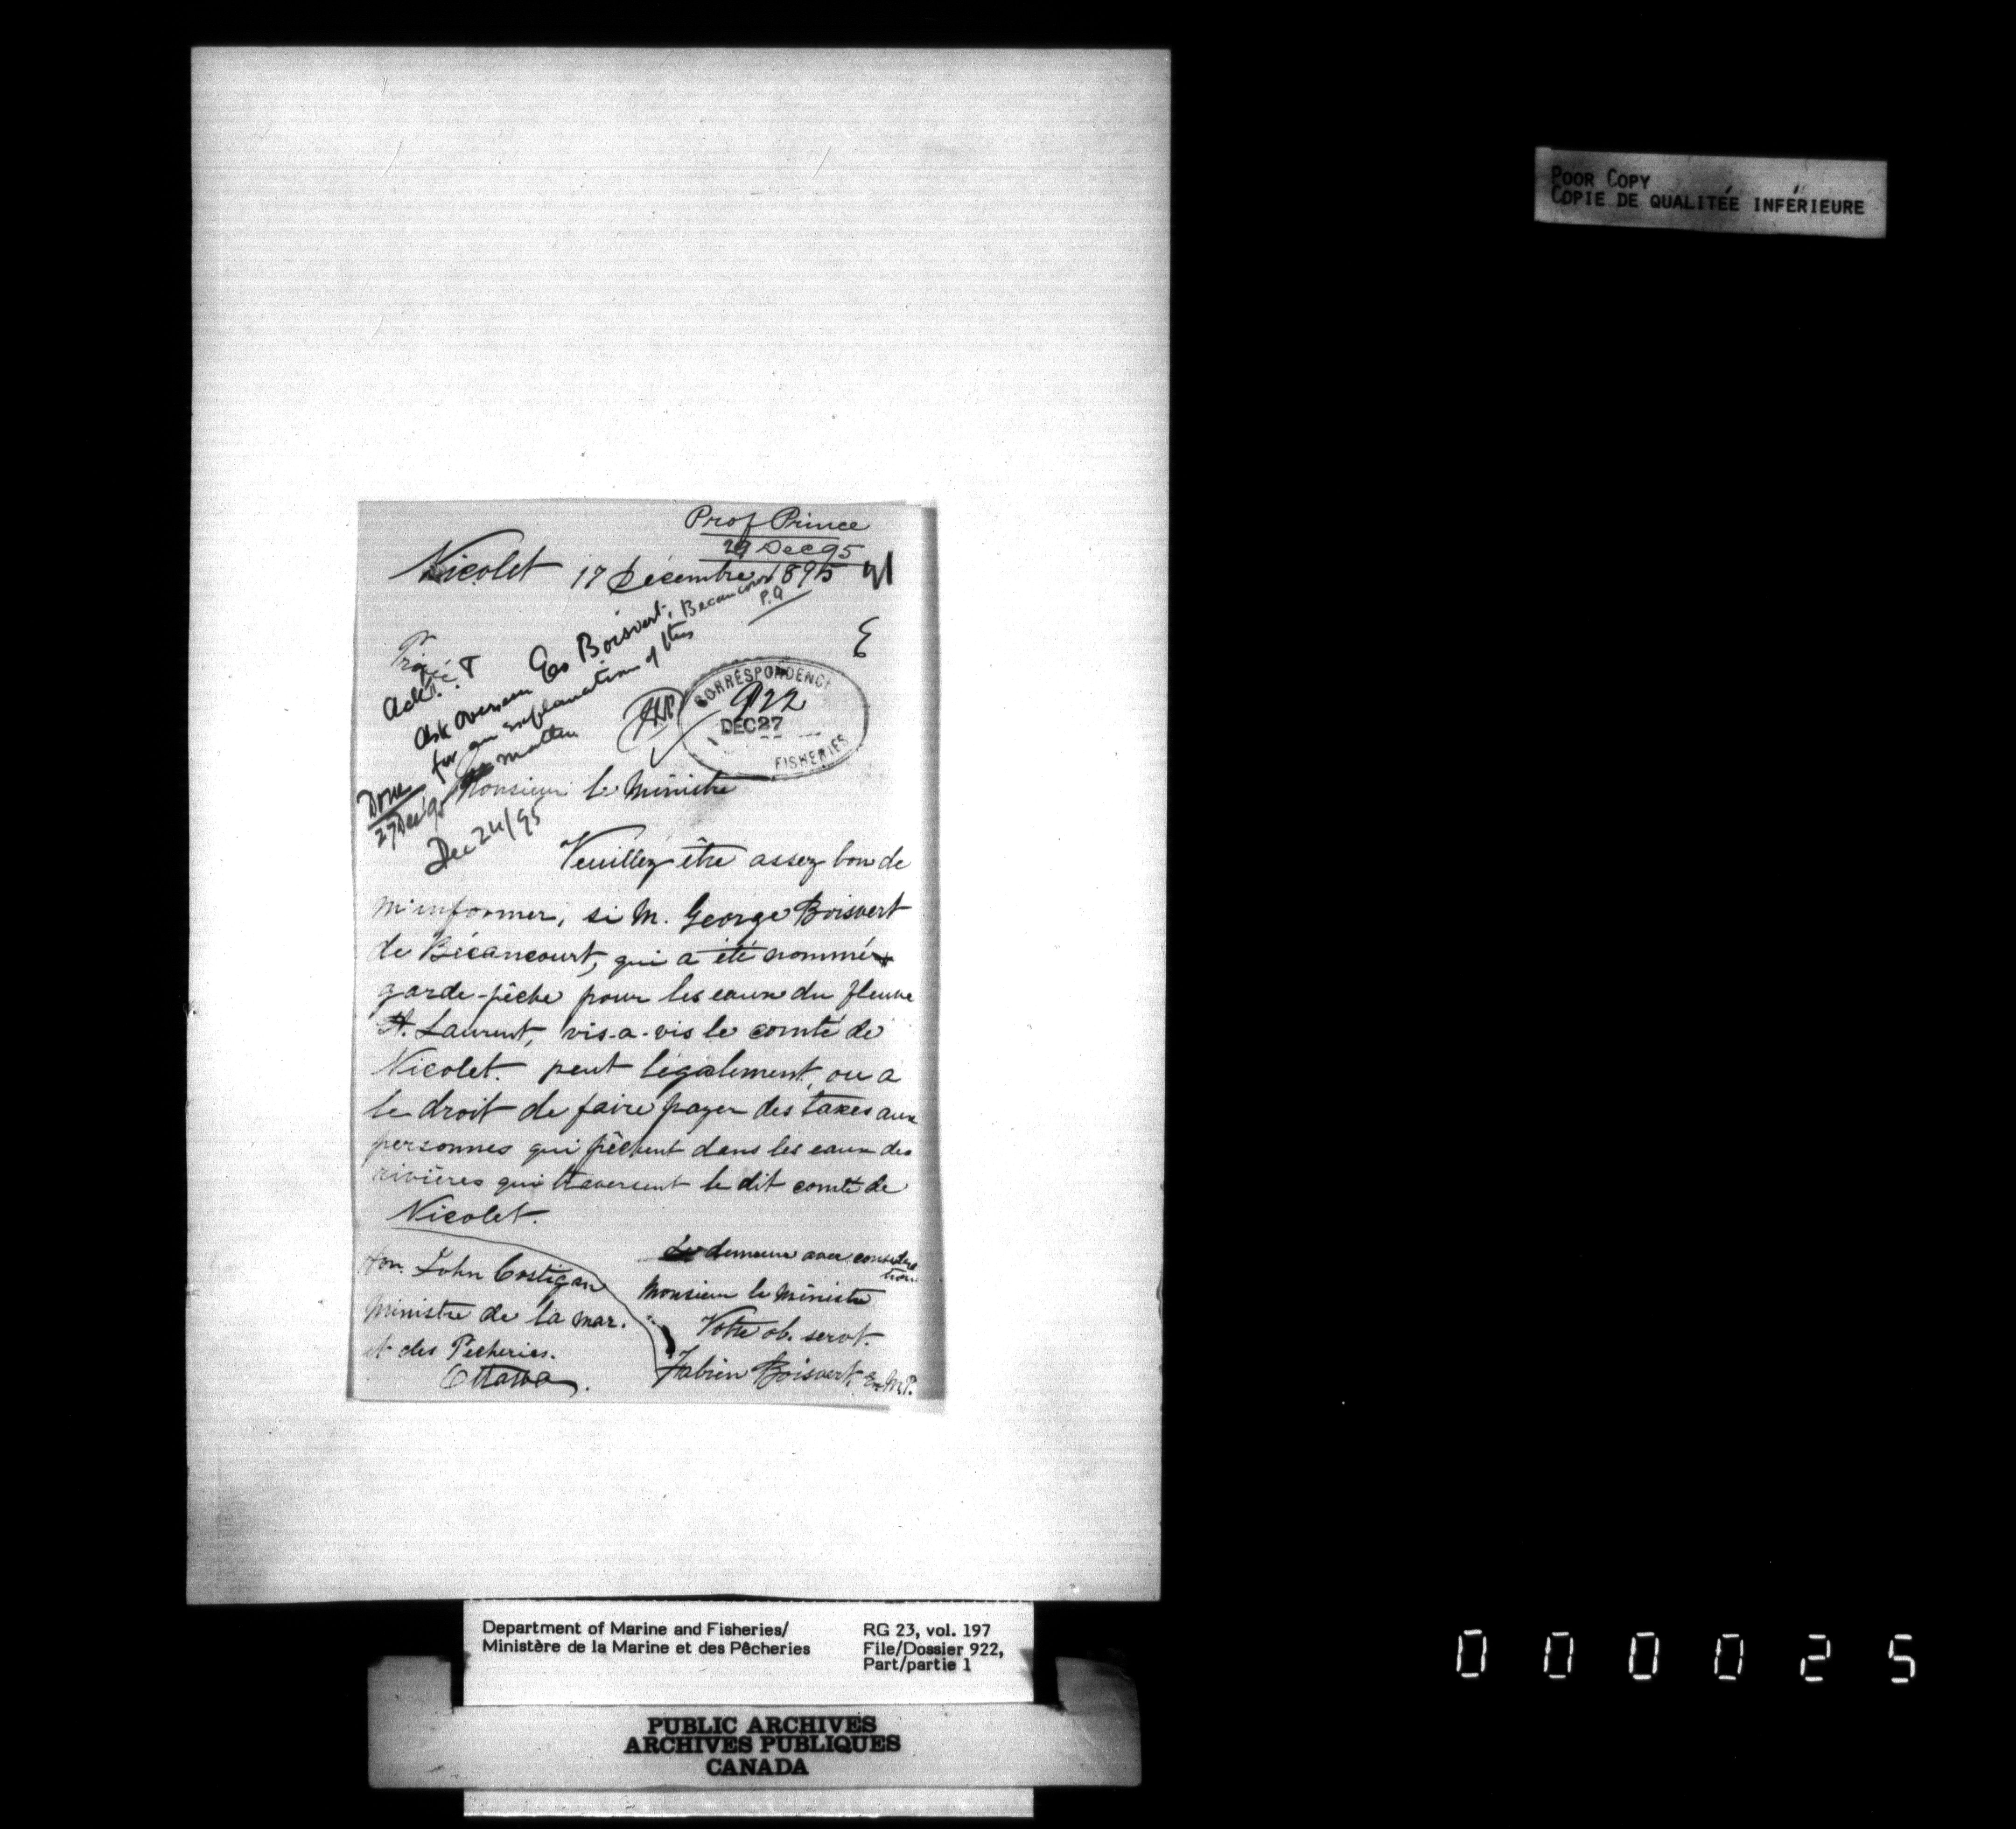 POOR COPY
COPIE DE QUALITÉE INFÉRIEURE
Prof Prince
29 Dec 95
Nicolet 17 Décembre 1895
Ask Overseer Geo Boisvert, Becancour P.Q
for an explanation of this
matter
Done
27 Dec 95
Dec 24/95
CORRESPONDENCE
922
DEC 27
FISHERIES
Monsieur le Ministre
Veuillez être assez bon de
m'informer, si M. George Boisvert
de Bécancourt, qui a été nommé
garde-pêche pour les eaux du fleuve
St. Laurent, vis-a-vis le comté de
Nicolet. peut légalement, ou a
le droit de faire payer des taxes aux
personnes qui pêchent dans les eaux des
rivières qui traversent le dit comté de
Nicolet.
demeure avec considération
Monsieur le Ministre
Votre ob. servt.
Fabien Boisvert, Ex M.P.
Hon. John Costigan
Ministre de la mar.
et des Pêcheries.
Ottawa.
Department of Marine and Fisheries/
Ministère de la Marine et des Pêcheries
RG 23, vol. 197
File/Dossier 922,
Part/partie 1
PUBLIC ARCHIVES
ARCHIVES PUBLIQUES
CANADA
000025